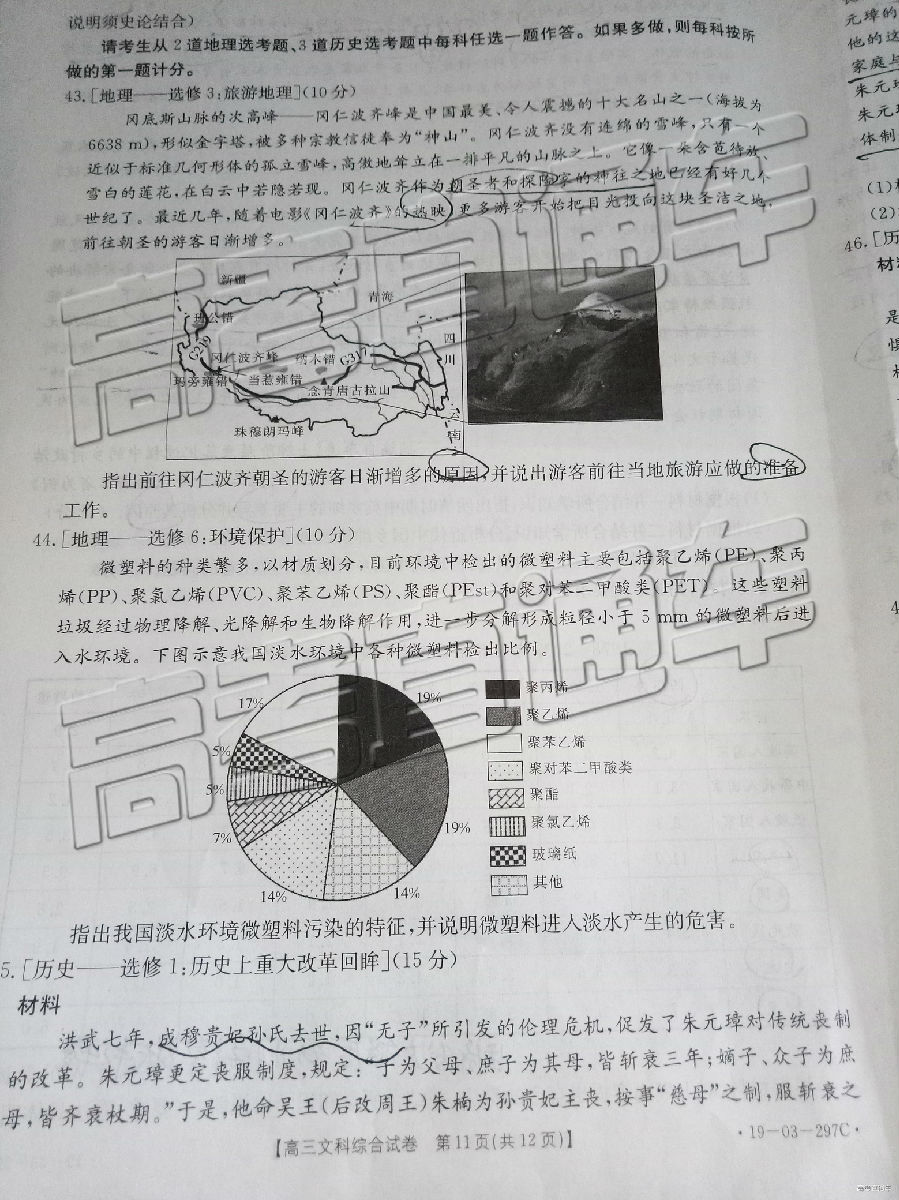 说明须史论结合)
请考生从2道地理选考题、3道历史选考题中每科任选一题作答。如果多做,则每科按所
做的第一题计分。
43.[地理——选修3:旅游地理](10分)
冈底斯山脉的次高峰——冈仁波齐峰是中国最美、令人震撼的十大名山之一(海拔为
6638 m),形似金字塔,被多种宗教信徒奉为“神山”。冈仁波齐没有连绵的雪峰,只有一个
近似于标准几何形体的孤立雪峰,高傲地耸立在一排平凡的山脉之上。它像一朵含苞待放、
雪白的莲花,在白云中若隐若现。冈仁波齐作为朝圣者和探险家的神往之地已经有好几个
世纪了。最近几年,随着电影《冈仁波齐》的热映,更多游客开始把目光投向这块圣洁之地,
前往朝圣的游客日渐增多。
新疆
青海
班公错
四川
G219
冈仁波齐峰
纳木错
G317
玛旁雍错
当惹雍错
念青唐古拉山
云南
珠穆朗玛峰
指出前往冈仁波齐朝圣的游客日渐增多的原因,并说出游客前往当地旅游应做的准备
工作。
44.[地理——选修6:环境保护](10分)
微塑料的种类繁多,以材质划分,目前环境中检出的微塑料主要包括聚乙烯(PE)、聚丙
烯(PP)、聚氯乙烯(PVC)、聚苯乙烯(PS)、聚酯(PEst)和聚对苯二甲酸类(PET)。这些塑料
垃圾经过物理降解、光降解和生物降解作用,进一步分解形成粒径小于5 mm的微塑料后进
入水环境。下图示意我国淡水环境中各种微塑料检出比例。
17%
19%
5%
5%
7%
19%
14%
14%
聚丙烯
聚乙烯
聚苯乙烯
聚对苯二甲酸类
聚酯
聚氯乙烯
玻璃纸
其他
指出我国淡水环境微塑料污染的特征,并说明微塑料进入淡水产生的危害。
5.[历史——选修1:历史上重大改革回眸](15分)
材料
洪武七年,成穆贵妃孙氏去世,因“无子”所引发的伦理危机,促发了朱元璋对传统丧制
的改革。朱元璋更定丧服制度,规定:“子为父母、庶子为其母,皆斩衰三年;嫡子、众子为庶
母,皆齐衰杖期。”于是,他命吴王(后改周王)朱橚为孙贵妃主丧,按事“慈母”之制,服斩衰之
【高三文科综合试卷 第11页(共12页)】
·19-03-297C·
元璋的
他的这
家庭与
朱元
朱元
体制
(1)
(2)
46.[历
材料
高考直通车
高考直通车